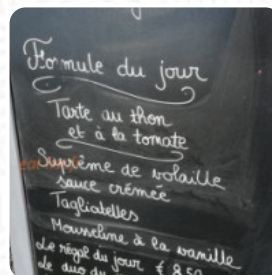 Formule du jour
Tarte au thon
et à la tomate
Suprême de volaille
sauce crémée
Tagliatelles
Mousseline à la vanille
Le régal du jour € 8,50
Le duo du